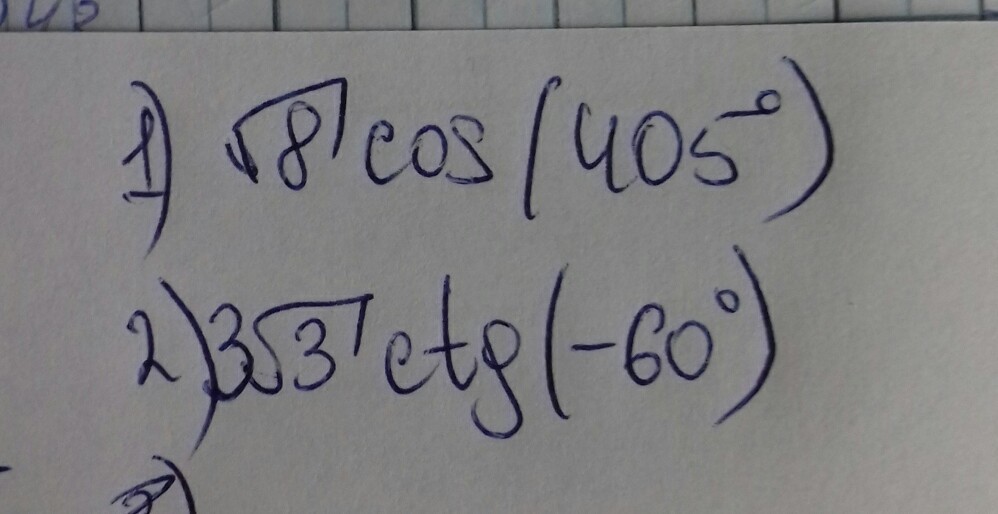 1) √8 cos (405°)
2) 3√3 ctg (-60°)